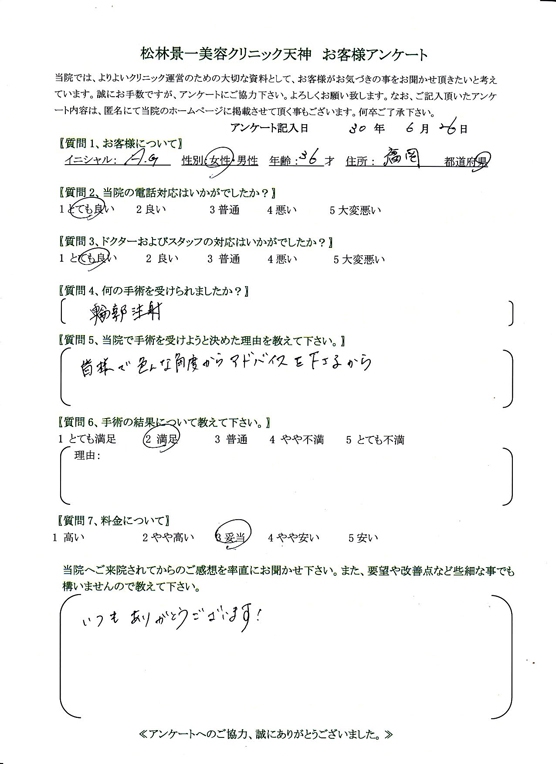 松林景一美容クリニック天神　お客様アンケート
当院では、よりよいクリニック運営のための大切な資料として、お客様がお気づきの事をお聞かせ頂きたいと考え
ています。誠にお手数ですが、アンケートにご協力下さい。よろしくお願い致します。なお、ご記入頂いたアンケ
ート内容は、匿名にて当院のホームページに掲載させて頂く事もございます。何卒ご了承下さい。
アンケート記入日　30 年　6 月 26 日
〖質問1、お客様について〗
イニシャル: A.G　性別:女性・男性　年齢:36 才　住所: 福岡　都道府県
〖質問2、当院の電話対応はいかがでしたか?〗
1 とても良い　2 良い　3 普通　4 悪い　5 大変悪い
〖質問3、ドクターおよびスタッフの対応はいかがでしたか?〗
1 とても良い　2 良い　3 普通　4 悪い　5 大変悪い
〖質問4、何の手術を受けられましたか?〗
輪郭注射
〖質問5、当院で手術を受けようと決めた理由を教えて下さい。〗
皆様で色んな角度からアドバイスを下さるから
〖質問6、手術の結果について教えて下さい。〗
1 とても満足　2 満足　3 普通　4 やや不満　5 とても不満
理由:
〖質問7、料金について〗
1 高い　2 やや高い　3 妥当　4 やや安い　5 安い
当院へご来院されてからのご感想を率直にお聞かせ下さい。また、要望や改善点など些細な事でも
構いませんので教えて下さい。
いつもありがとうございます!
≪アンケートへのご協力、誠にありがとうございました。≫